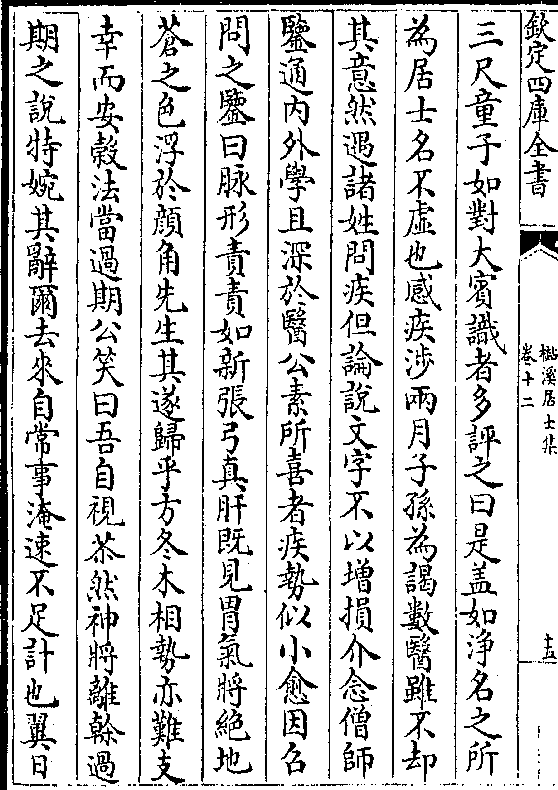 欽定四庫全書
樾溪居士集
卷十二
十五
三尺童子如對大賓識者多評之曰是盖如浄名之所
為居士名不虛也感疾涉兩月子孫為謁數醫雖不却
其意然遇諸姓問疾但論說文字不以增損介念僧師
鑒通内外學且深於醫公素所喜者疾勢似小愈因召
問之鑒曰脉形責責如新張弓真肝既見胃氣將絶地
蒼之色浮於顔角先生其遂歸乎方冬木相勢亦難支
幸而安榖法當過期公笑曰吾自視苶然神將離榦過
期之說特婉其辭爾去來自常事淹速不足計也翼日